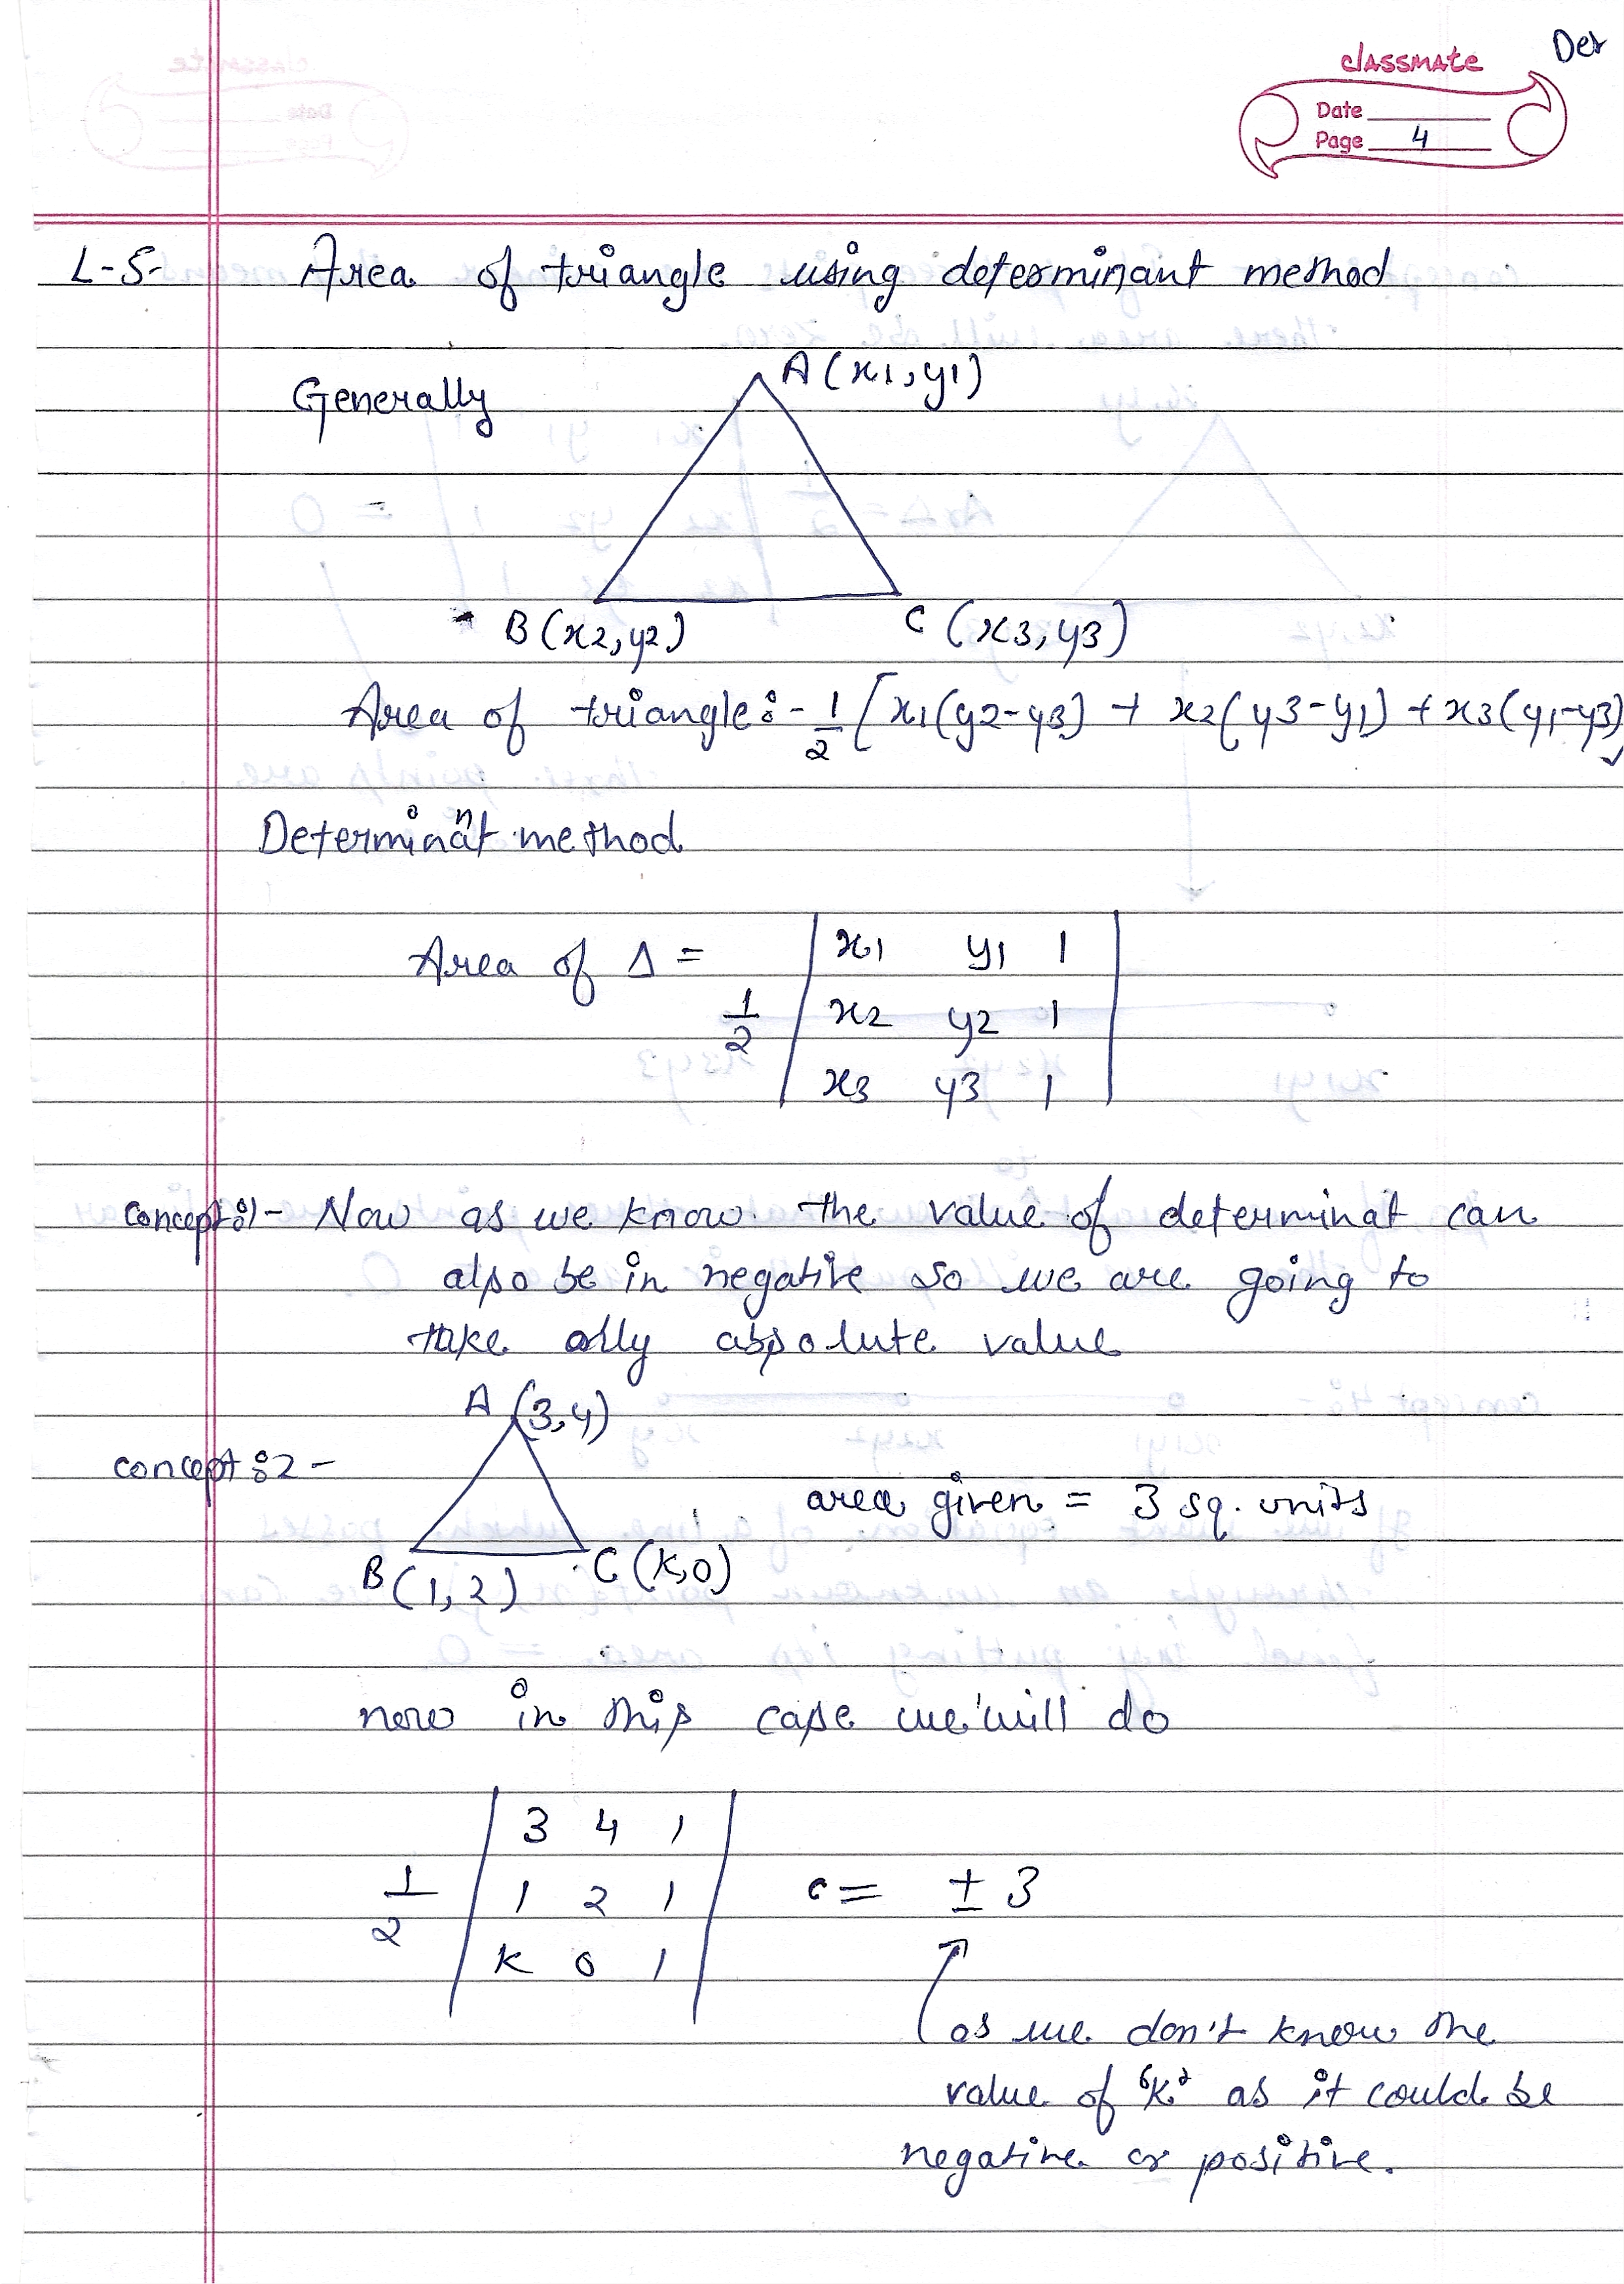 Der
classmate
Date
Page 4
L-5- Area of triangle using determinant method
Generally
A(x1,y1)
B(x2,y2)
C(x3,y3)
Area of triangle:- 1/2 [x1(y2-y3) + x2(y3-y1) + x3(y1-y3)
Determinant method
Area of Δ =
x1 y1 1
1/2 x2 y2 1
x3 y3 1
concept:1- Now as we know the value of determinat can
also be in negative so we are going to
take only absolute value
A (3,4)
concept:2-
area given = 3 sq. units
B(1,2)
C(K,0)
now in this case we will do
3 4 1
1/2 1 2 1 = ± 3
K 0 1
as we don't know the
value of 'K' as it could be
negative or positive.